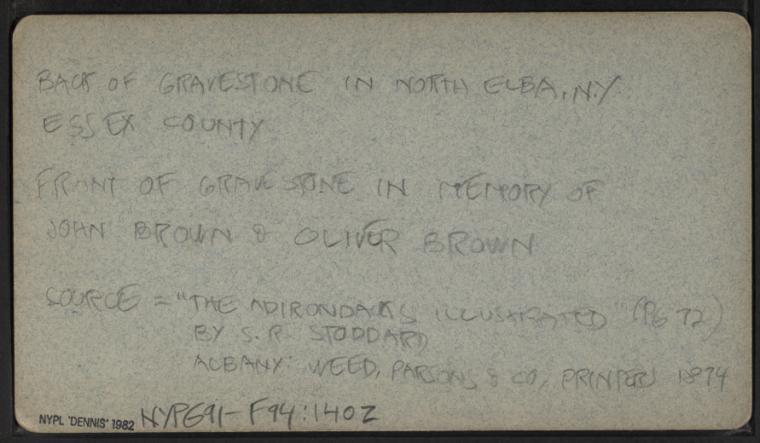 BACK OF GRAVESTONE IN NORTH ELBA, N.Y.
ESSEX COUNTY
FRONT OF GRAVE STONE IN MEMORY OF
JOHN BROWN & OLIVER BROWN
SOURCE = "THE ADIRONDACKS ILLUSTRATED" (PG 72)
BY S. R. STODDARD
ALBANY: WEED, PARSONS & CO, PRINTERS 1874
NYPL 'DENNIS' 1982 NYPG91-F94:140Z